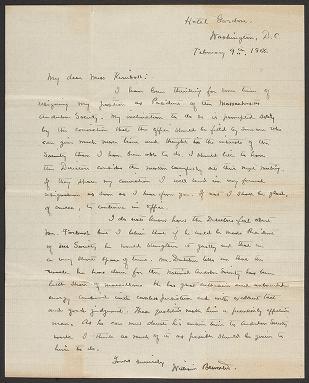 Hotel Gordon.
Washington, D.C.
February 9th, 19
My dear Miss Kimball:
I have been thinking for some time of
resigning my position as President of the Massachusetts
Audubon Society. My inclination to do so is prompted solely
by the conviction that the office should be filled by someone who
can give much more time and thought to the interests of the
Society than I have been able to do. I should like to have
the Directors consider the matter carefully at their next meeting.
If they share my conviction I will send in my formal
resignation as soon as I hear from you. If not I shall be glad,
of course, to continue in office.
I do not know how the Directors feel about
Mr. but I believe that if he could be made President
of our Society he would strengthen it greatly and that in
a very short space of time. Mr. Dutcher tells me that the
he have done for the National Audubon Society has been
little short of marvellous. He has great enthusiasm and
energy combined with and with excellent tact
and good judgment. These qualities make him a
man. As he can now devote his entire time to Audubon Society
work I think as much of it as possible should be given to
him to do.
Yours sincerely,
William Brewster.